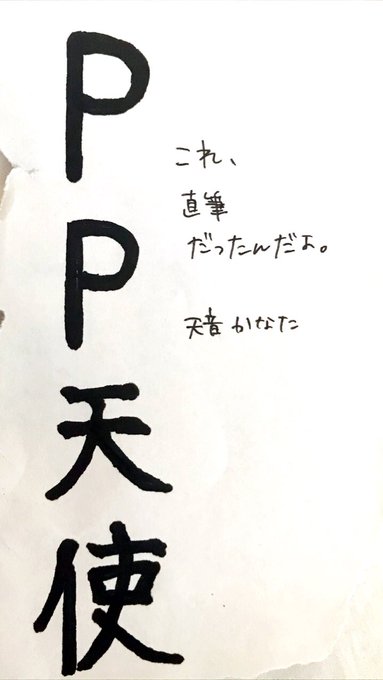 PP天使
これ、
直筆
だったんだよ。
天音かなた